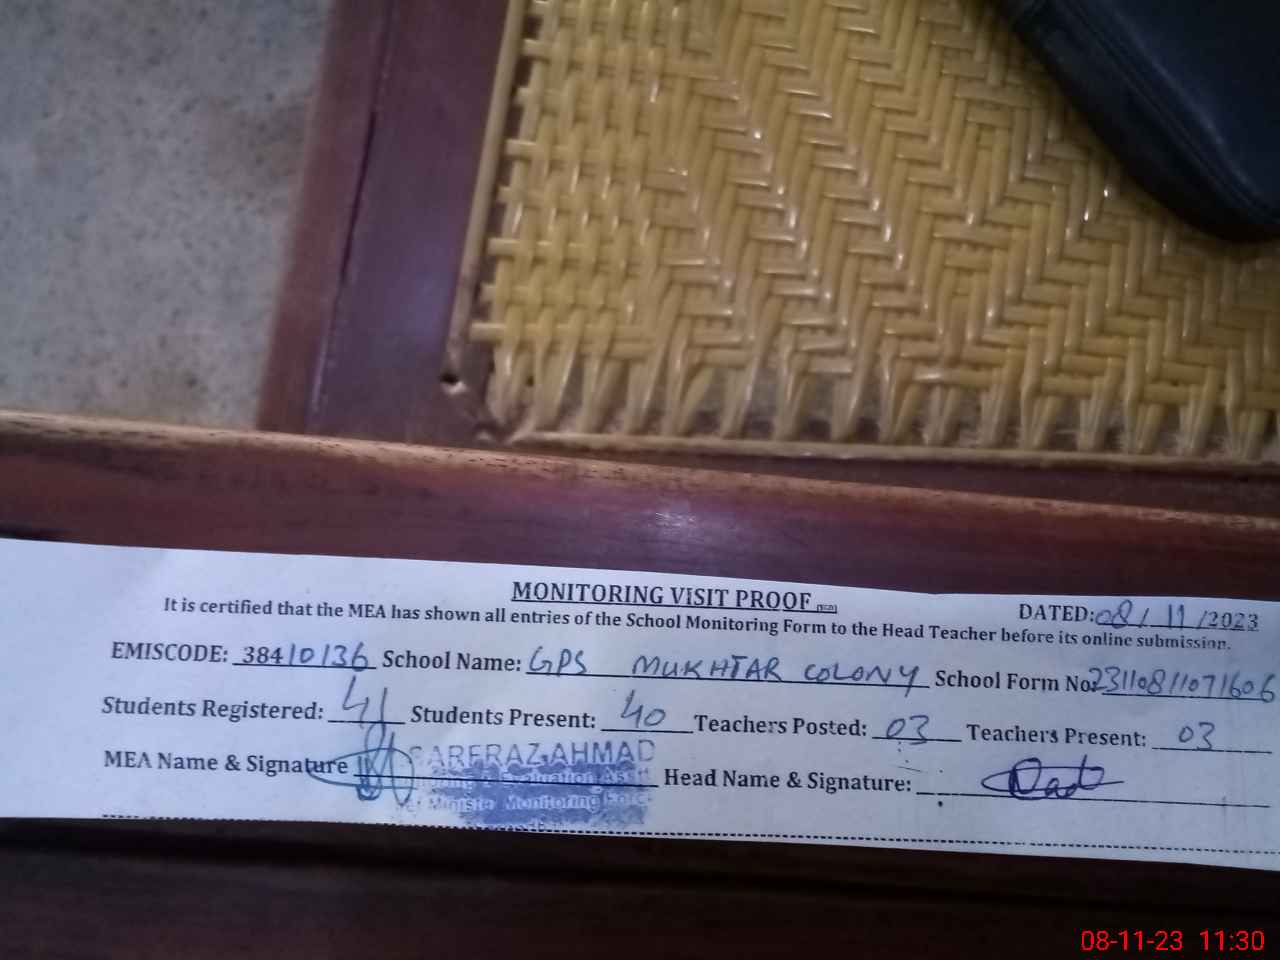 MONITORING VISIT PROOF
DATED: 08/11/2023
It is certified that the MEA has shown all entries of the School Monitoring Form to the Head Teacher before its online submission.
EMISCODE: 38410136 School Name: GPS MUKHTAR COLONY School Form No: 23110811071606
Students Registered: 41 Students Present: 40 Teachers Posted: 03 Teachers Present: 03
MEA Name & Signature SARFRAZ AHMAD Head Name & Signature:
Evaluation Assit
Monitoring Force
08-11-23 11:30